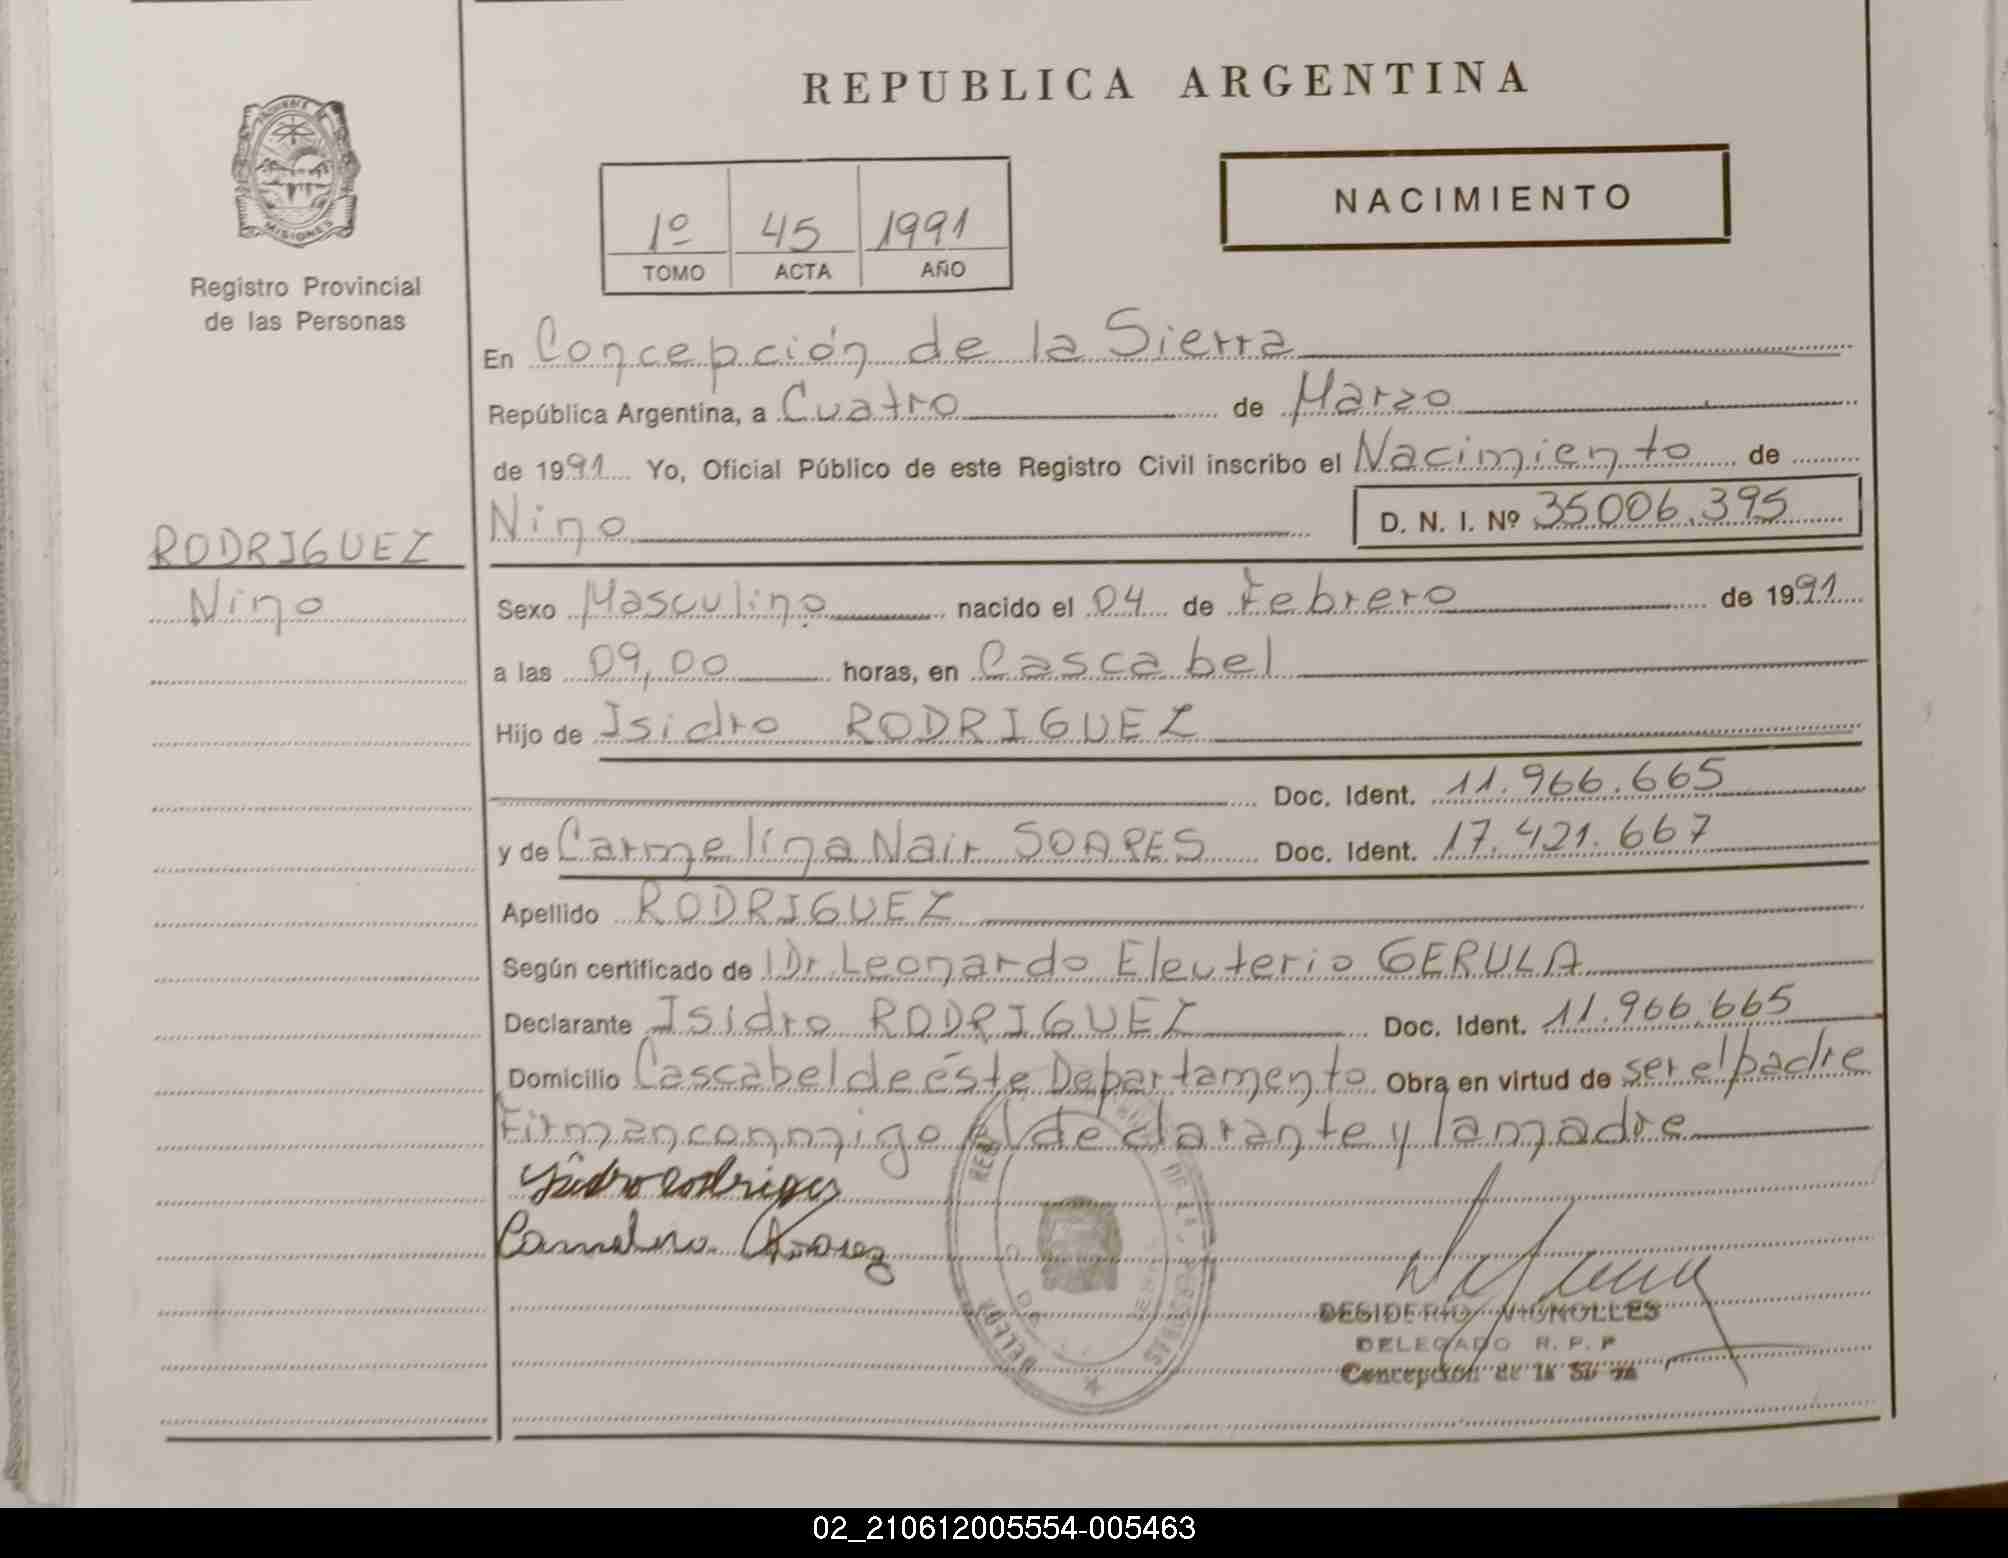 REPUBLICA ARGENTINA
NACIMIENTO
1º 45 1991
TOMO ACTA AÑO
MISIONES
Registro Provincial
de las Personas
En Concepción de la Sierra
República Argentina, a Cuatro de Marzo
de 1991 Yo, Oficial Público de este Registro Civil inscribo el Nacimiento de
Nino D. N. I. Nº 35006.395
RODRIGUEZ
Nino
Sexo Masculino nacido el 04 de Febrero de 1991
a las 09,00 horas, en Cascabel
Hijo de Isidro RODRIGUEZ
Doc. Ident. 11.966.665
y de Carmelina Nair SOARES Doc. Ident. 17.421.667
Apellido RODRIGUEZ
Según certificado de Dr Leonardo Eleuterio GERULA
Declarante Isidro RODRIGUEZ Doc. Ident. 11.966.665
Domicilio Cascabel de éste Departamento Obra en virtud de ser el padre
Firman conmigo el declarante y la madre
Isidro rodriguez
DESIDERIO VIGNOLLES
DELEGADO R. P. P
Concepción de la
02_210612005554-005463